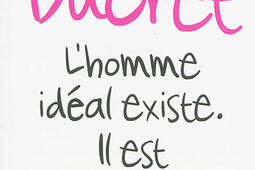 Ducret
L'homme
idéal existe.
Il est